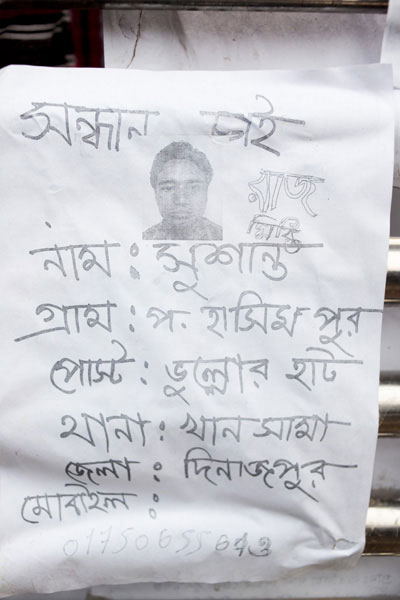 সন্ধান চাই
রাজ
মিস্ত্রি
নাম : সুশান্ত
গ্রাম : প. হাসিমপুর
পোস্ট : ভুল্লোর হাট
থানা : খানসামা
জেলা : দিনাজপুর
মোবাইল :
01750655643